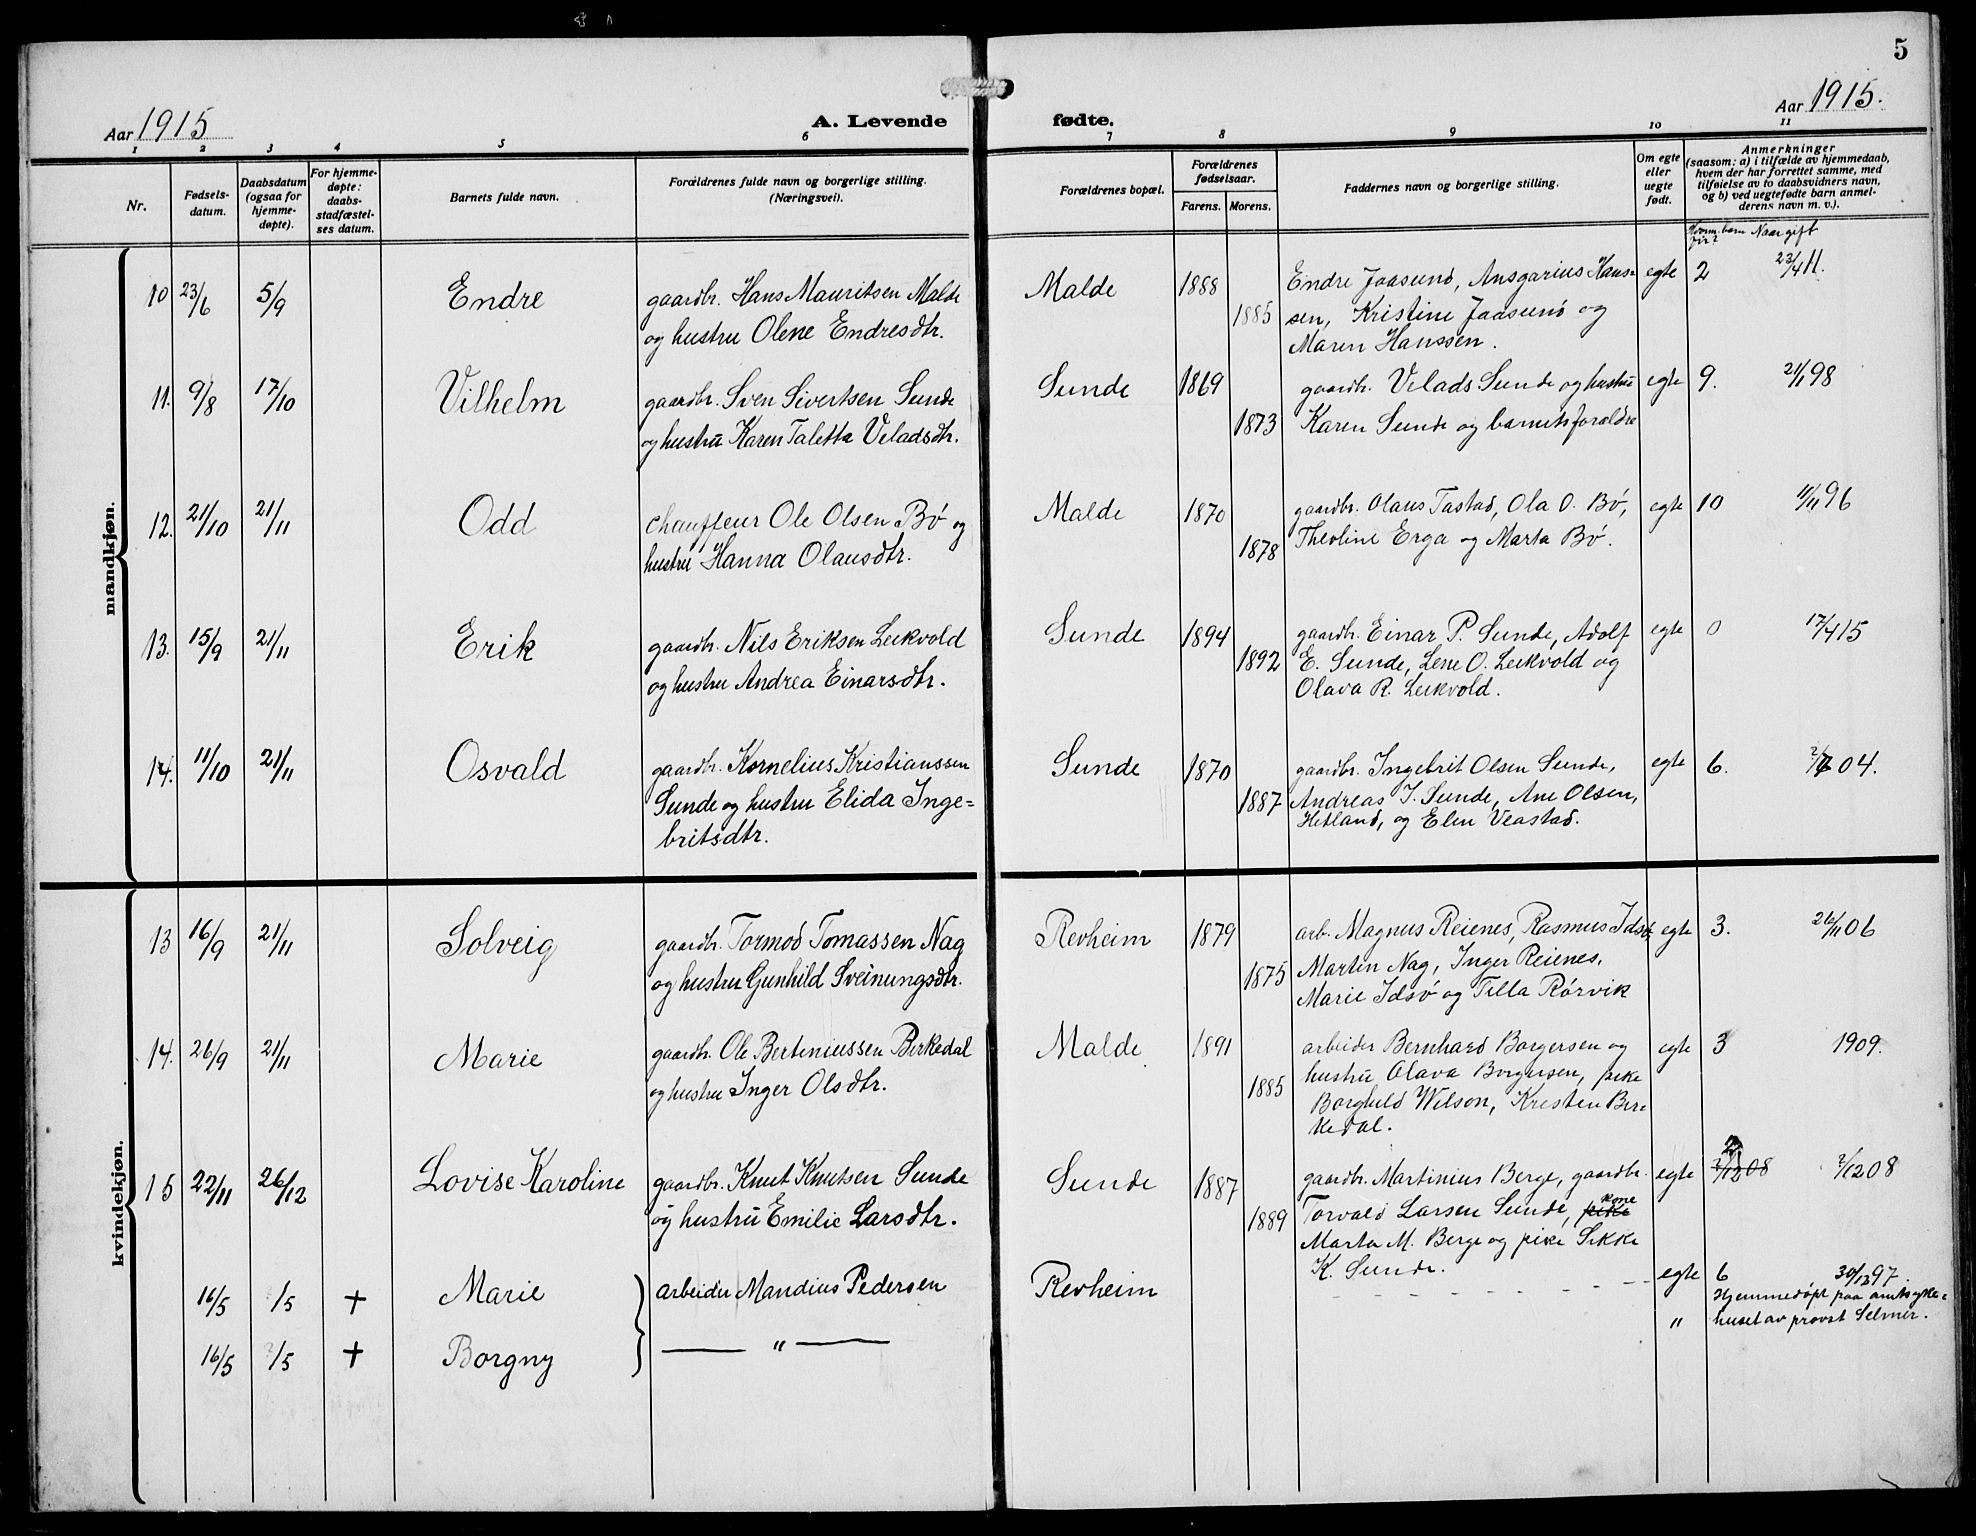 5
Aar 1915
A. Levende fødte.
Aar 1915.
1 2 3 4 5 6 7 8 9 10 11
Nr.
Fødsels-
datum.
Daabsdatum
(ogsaa for
hjemme-
døpte).
For hjemme-
døpte:
daabs-
stadfæstel-
ses datum.
Barnets fulde navn.
Forældrenes fulde navn og borgerlige stilling.
(Næringsvei).
Forældrenes bopæl.
Forældrenes
fødselsaar.
Farens. Morens.
Faddernes navn og borgerlige stilling.
Om egte
eller
uegte
født.
Anmerkninger
(saasom: a) i tilfælde av hjemmedaab,
hvem der har forrettet samme, med
tilføielse av to daabsvidners navn,
og b) ved uegtefødte barn anmel-
derens navn m. v.).
barn Naar gift
før?
mandkjøn.
10 23/6 5/9 Endre
gaardbr. Hans Mauritsen Malde
og hustru Olene Endresdtr.
Malde 1888 1885
Endre Jaasund, Ansgarius Hans-
sen, Kristine Jaasund og
Maren Hanssen.
egte 2 23/4 11.
11. 9/8 17/10 Vilhelm
gaardbr. Sven Sivertsen Sunde
og hustru Karen Taletta Veladsdtr.
Sunde 1869 1873
gaardbr. Velads Sunde og hustru
Karen Sunde og barnets forældre
egte 9. 21/1 98
12. 21/10 21/11 Odd
chauffeur Ole Olsen Bø og
hustru Hanna Olausdtr.
Malde 1870 1878
gaardbr. Olaus Tastad, Ola O. Bø,
Theoline Erga og Marta Bø.
egte 10 11/11 96
13. 15/9 21/11 Erik
gaardbr. Nils Eriksen Leikvold
og hustru Andrea Einarsdtr.
Sunde 1894 1892
gaardbr. Einar P. Sunde, Adolf
E. Sunde, Lene O. Leikvold og
Olava R. Leikvold.
egte 0 17/4 15
14. 11/10 21/11 Osvald
gaardbr. Kornelius Kristianssen
Sunde og hustru Elida Inge-
britsdtr.
Sunde 1870 1887
gaardbr. Ingebrit Olsen Sunde,
Andreas I. Sunde, Ane Olsen,
Hetland, og Elen Veastad.
egte 6. 04.
kvindekjøn.
13 16/9 21/11 Solveig
gaardbr. Tormod Tomassen Nag
og hustru Gunhild Sveinungsdtr.
Revheim 1879 1875
arb. Magnus Reienes, Rasmus Idsø,
Martin Nag, Inger Reienes,
Marie Idsø og Tilla Rørvik
egte 3. 26/11 06
14. 26/9 21/11 Marie
gaardbr. Ole Berteniussen Birkedal
og hustru Inger Olsdtr.
Malde 1891 1885
arbeider Bernhard Borgersen og
hustru Olava Borgersen, pike
Borghild Wilson, Kristen Bir-
kedal.
egte 3 1909.
15 22/11 26/12 Lovise Karoline
gaardbr. Knut Knutsen Sunde
og hustru Emilie Larsdtr.
Sunde 1887 1889
gaardbr. Martinius Berge, gaardbr.
Torvald Larsen Sunde, pike kone
Marta M. Berge og pike Sikke
K. Sunde.
egte 2 2/12 08 2/12 08
16/5 /5 + Marie
arbeider Mandius Pedersen
Revheim
egte 6 30/12 97.
16/5 /5 + Borgny
"
"
Hjemmedøpt paa amtsyke-
huset av provst Selmer.